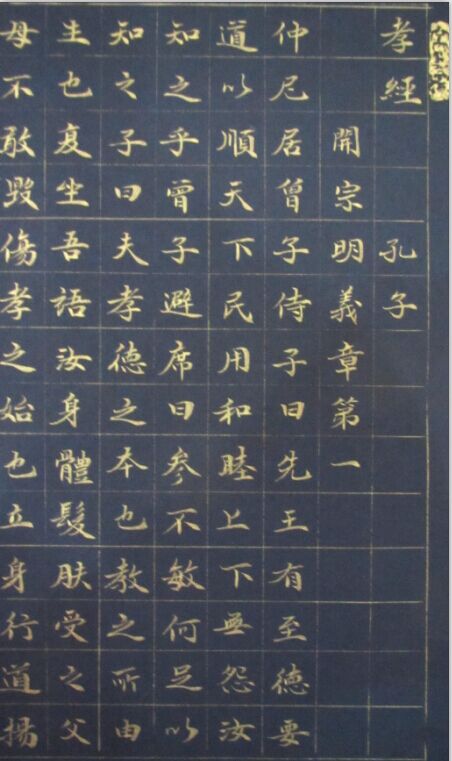 孝經 孔子
開宗明義章第一
仲尼居曾子侍子曰先王有至德要
道以順天下民用和睦上下無怨汝
知之乎曾子避席曰参不敏何足以
知之子曰夫孝德之本也教之所由
生也复坐吾語汝身體髮肤受之父
母不敢毀傷孝之始也立身行道揚